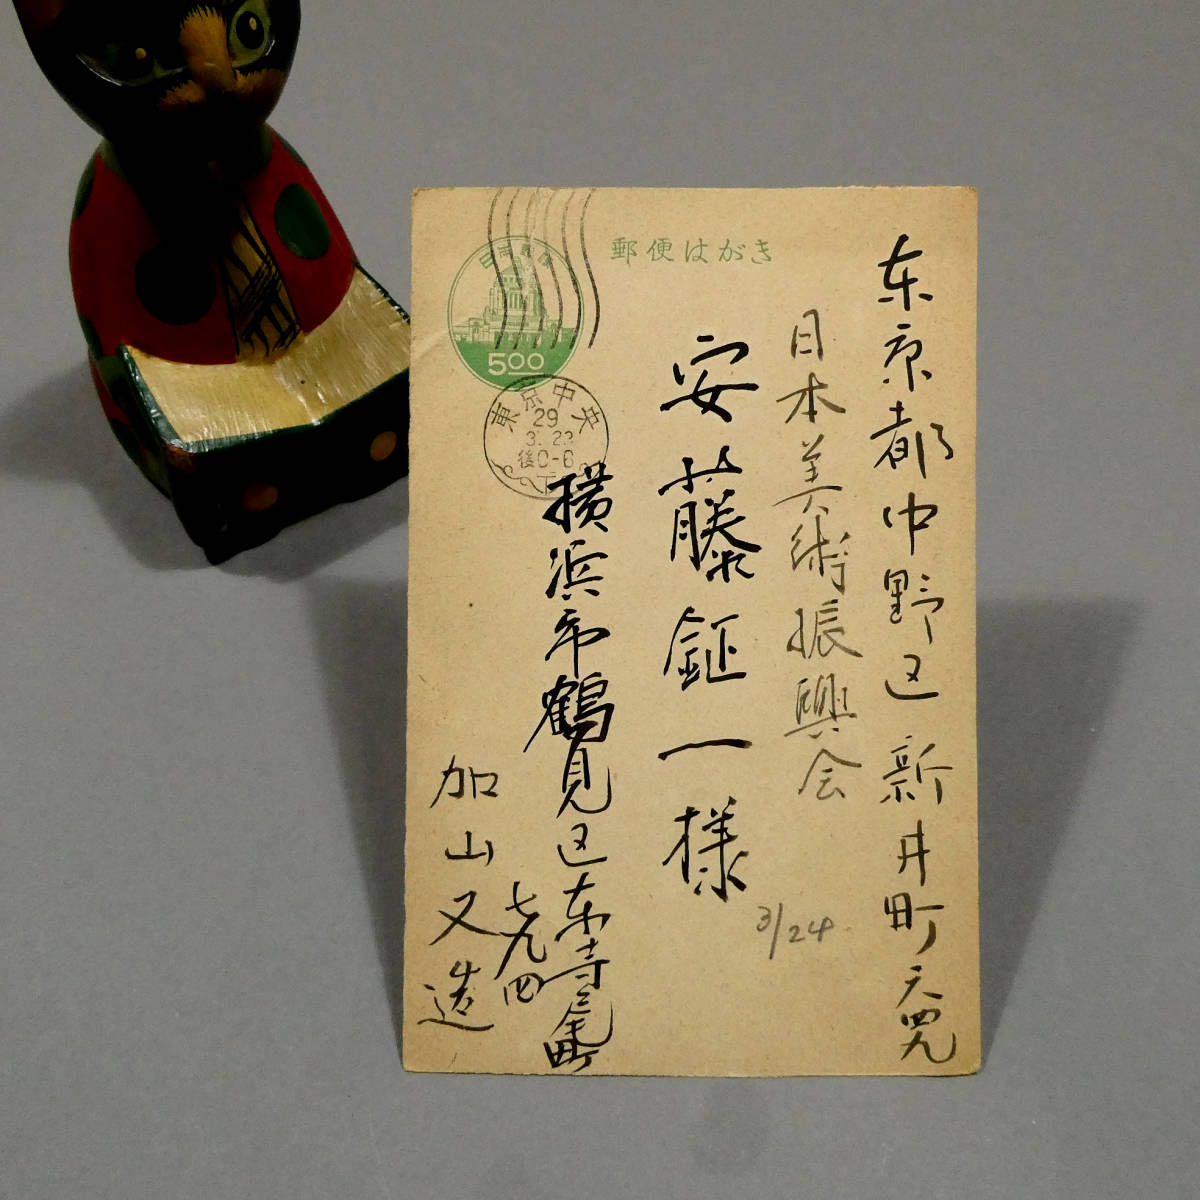 郵便はがき
日本郵便
5.00
東京中央
29
3.23
後0-6
东京都中野区新井町
日本美術振興会
安藤鉦一様
3/24
横浜市鶴見区东寺尾町
七九四
加山又造